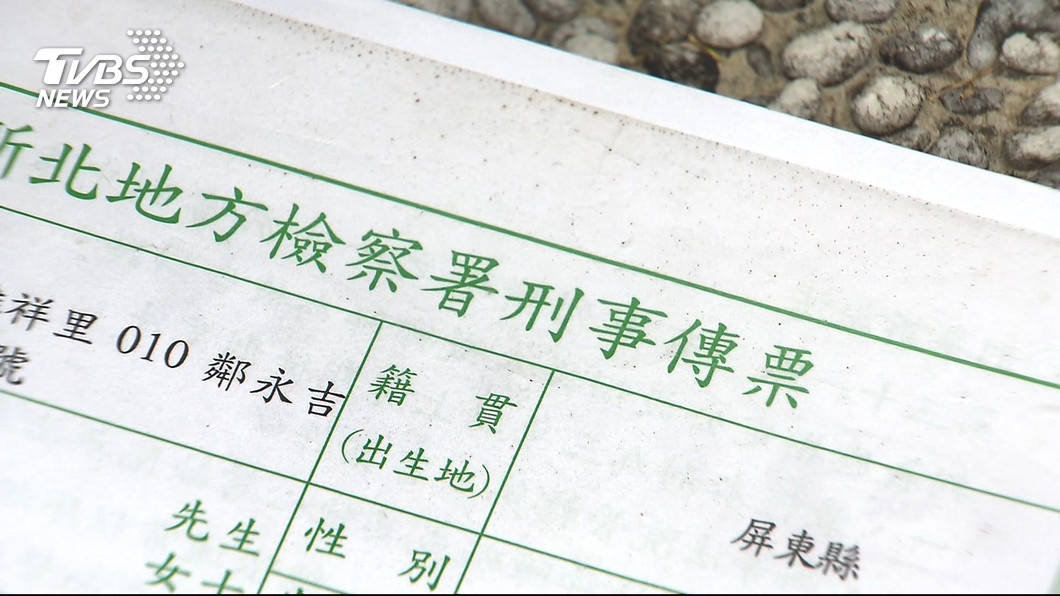 TVBS
NEWS
新北地方檢察署刑事傳票
祥里 010 鄰永吉
號
籍貫
(出生地)
屏東縣
先生
女士
性別